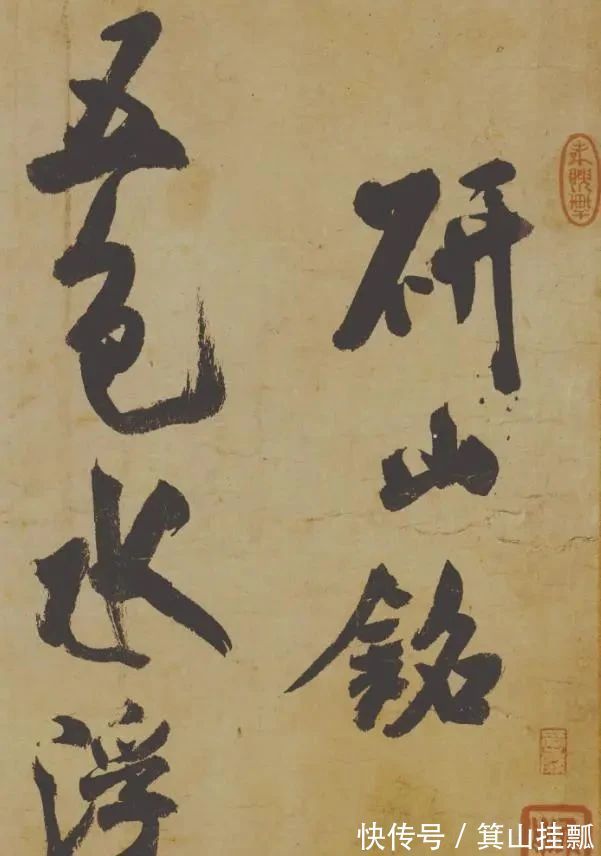 研山銘
五色水浮
快传号 / 箕山挂瓢